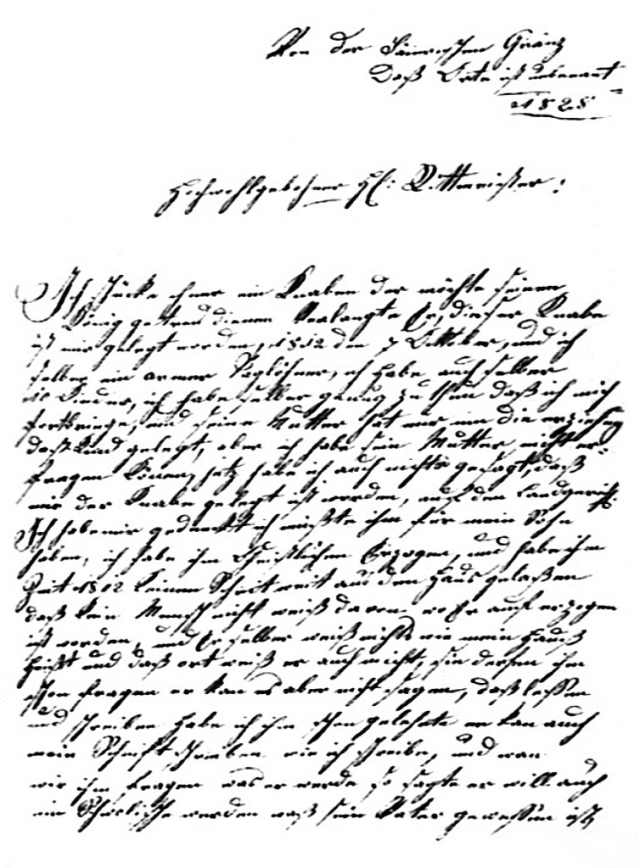 Von der Bäierischen Gränz
Daß Orte ist unbenant
1828
Hochwohlgebohner Hl: Rittmeister!
Ich schücke ihner ein Knaben der möchte seinen
König getreu dienen Verlangte Er, dieser Knabe
ist mir gelegt worden, 1812 den 7 Ocktober, und ich
selber ein armer Taglöhner, ich habe auch selber
10 Kinder, ich habe selber genug zu thun daß ich mich
fortbringe, und seine Mutter hat mir um die erziehung
daß Kind gelegt, aber ich habe sein Mutter nicht er-
fragen Könen, jetz habe ich auch nichts gesagt, daß
mir der Knabe gelegt ist worden, auf den Landgericht.
Ich habe mir gedenckt ich müßte ihm für mein Sohn
haben, ich habe ihm Christlichen Erzogen, und habe ihm
Zeit 1812 Keinen Schrit weit aus den Haus gelaßen
daß Kein Mensch nicht weiß da von wo Er auf erzogen
ist worden, und Er selber weiß nichts wie mein Hauß
heißt und daß ort weiß er auch nicht, sie derfen ihm
schon fragen er kan es aber nicht sagen, daß leßen
und schreiben habe ich ihm schon gelehrte er kan auch
mein Schrift schreiben wie ich schreibe, und wan
wir ihm fragen was er werde so sagte er will auch
ein Schwolische werden waß sein Vater geweßen ist,